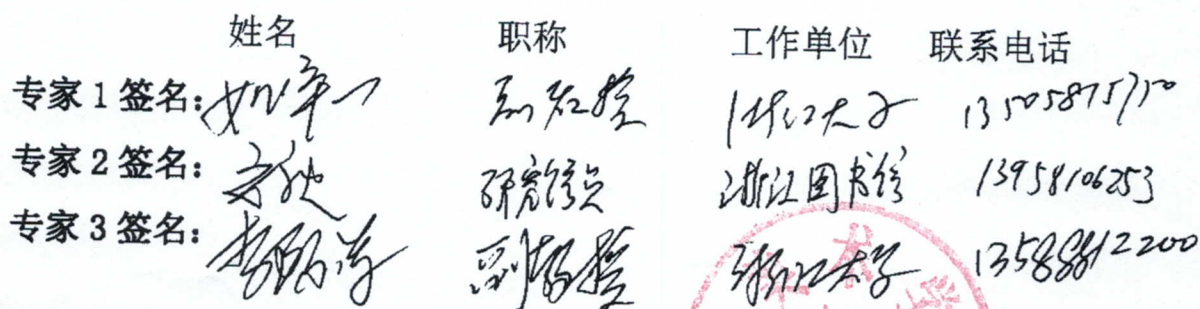 姓名 职称 工作单位 联系电话
专家1签名： 副教授 浙江大学 13505875750
专家2签名： 研究馆员 浙江图书馆 13958106253
专家3签名： 副教授 浙江大学 13588812200
术